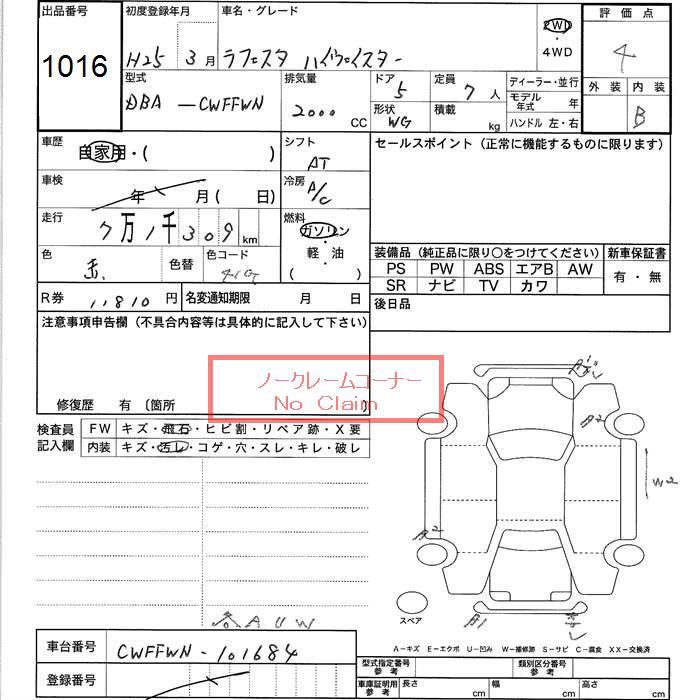 出品番号 初度登録年月 車名・グレード 評価点
1016 H25 3月 ラフェスタ ハイウェイスター 2WD・4WD 4
型式 排気量 ドア 定員 ディーラー・並行 外装 内装
DBA-CWFFWN 2000 CC 5 7人 モデル年式 年 B
形状 WG 積載 kg ハンドル 左・右
車歴 自家用・( ) シフト AT セールスポイント(正常に機能するものに限ります)
車検 年 月(日) 冷房 A/C
走行 7万1千309km 燃料 ガソリン・軽・油( )
色 色替 色コード 41G 装備品(純正品に限り○をつけてください) 新車保証書
PS PW ABS エアB AW 有・無
SR ナビ TV カワ
R券 11810円 名変通知期限 月 日 後日品
注意事項申告欄(不具合内容等は具体的に記入して下さい)
ノークレームコーナー
No Claim
修復歴 有〔箇所
検査員記入欄 FW キズ・飛石・ヒビ割・リペア跡・X要
内装 キズ・汚レ・コゲ・穴・スレ・キレ・破レ
A2
W2
A2
スペア
A1
AUW
A-キズ E-エクボ U-凹み W-補修跡 S-サビ C-腐食 XX-交換済
車台番号 CWFFWN-101684
型式指定番号 参考 類別区分番号 参考
登録番号 車庫証明用 参考 長さ cm 幅 cm 高さ cm